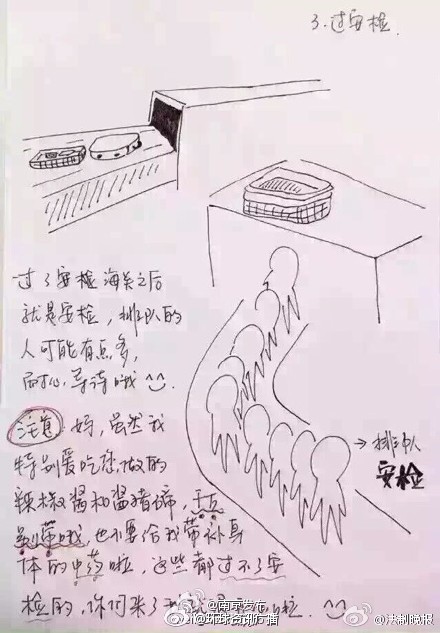 3.过安检.
过了安检海关之后
就是安检，排队的
人可能有点多，
耐心等待哦
→排队
安检
注意：妈，虽然我
特别爱吃您做的
辣椒酱和酱猪蹄，千万
别带哦，也不要给我带补身
体的中药啦，这些都过不了安
检的，你们来了我就
@南京发布
@法制晚报